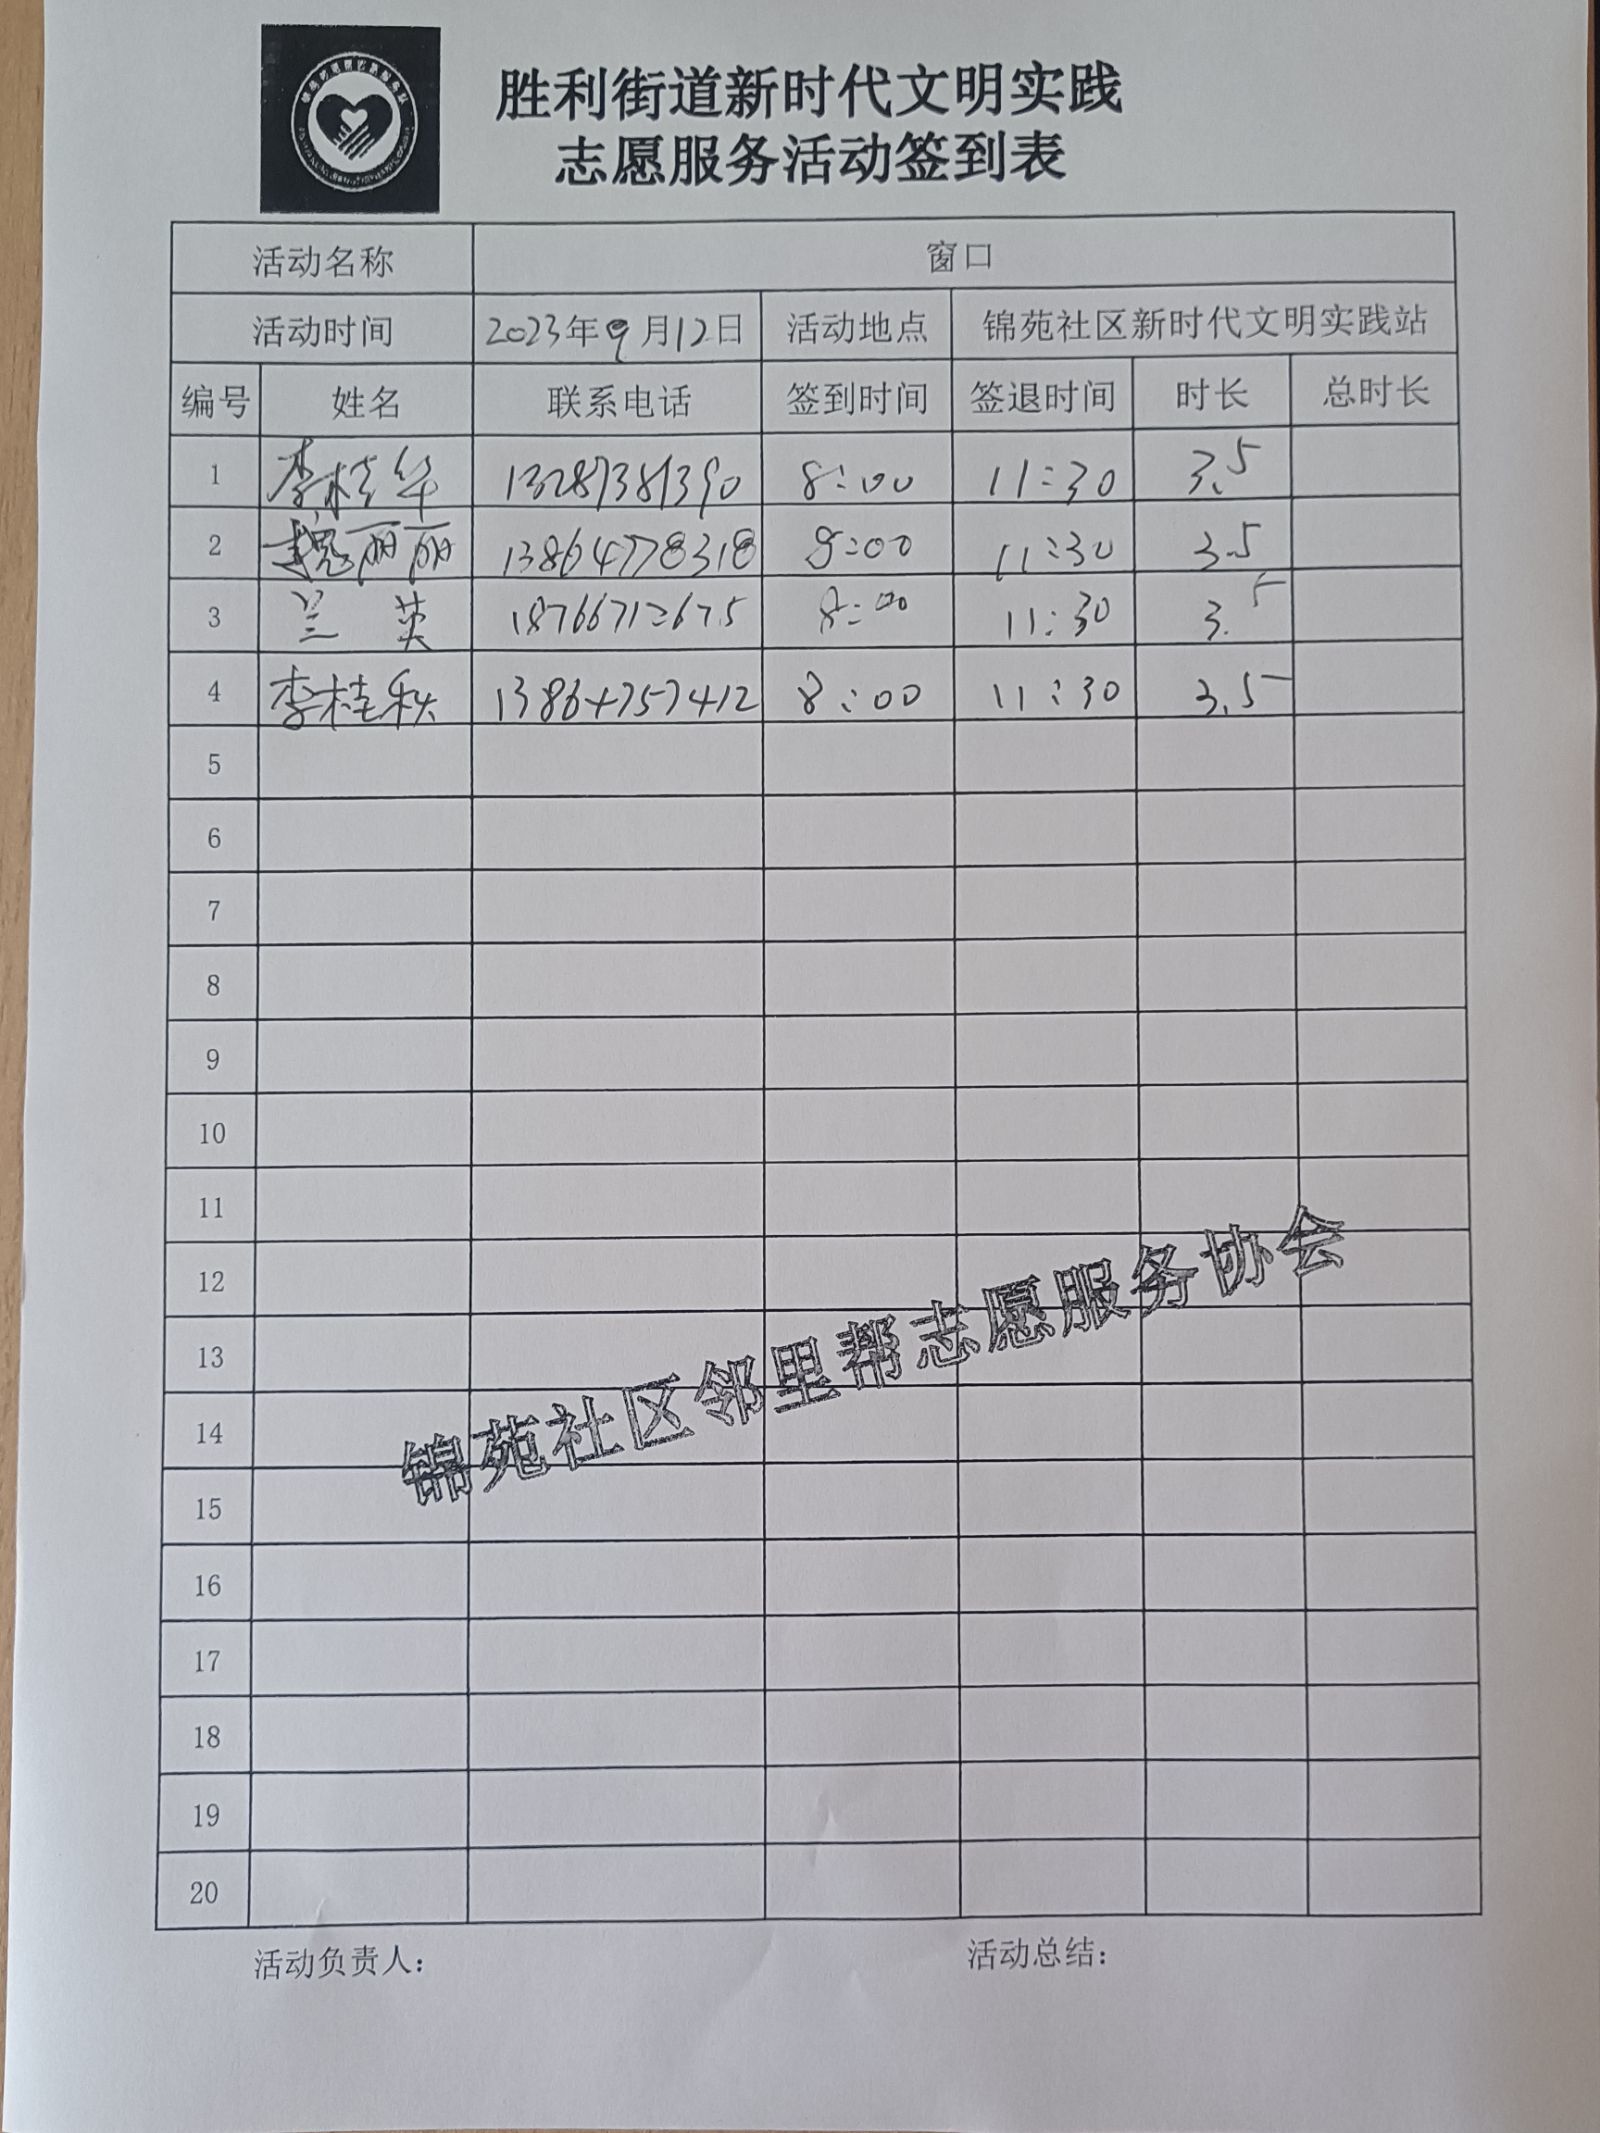 胜利街道新时代文明实践
志愿服务活动签到表
活动名称 窗口
活动时间 2023年9月12日 活动地点 锦苑社区新时代文明实践站
编号 姓名 联系电话 签到时间 签退时间 时长 总时长
1 李桂华 13287381390 8:00 11:30 3.5
2 魏丽丽 13864778318 8:00 11:30 3.5
3 兰英 18766712675 8:00 11:30 3.5
4 李桂秋 13864757412 8:00 11:30 3.5
5
6
7
8
9
10
11
12
13
14
15
16
17
18
19
20
锦苑社区邻里帮志愿服务协会
活动负责人： 活动总结：